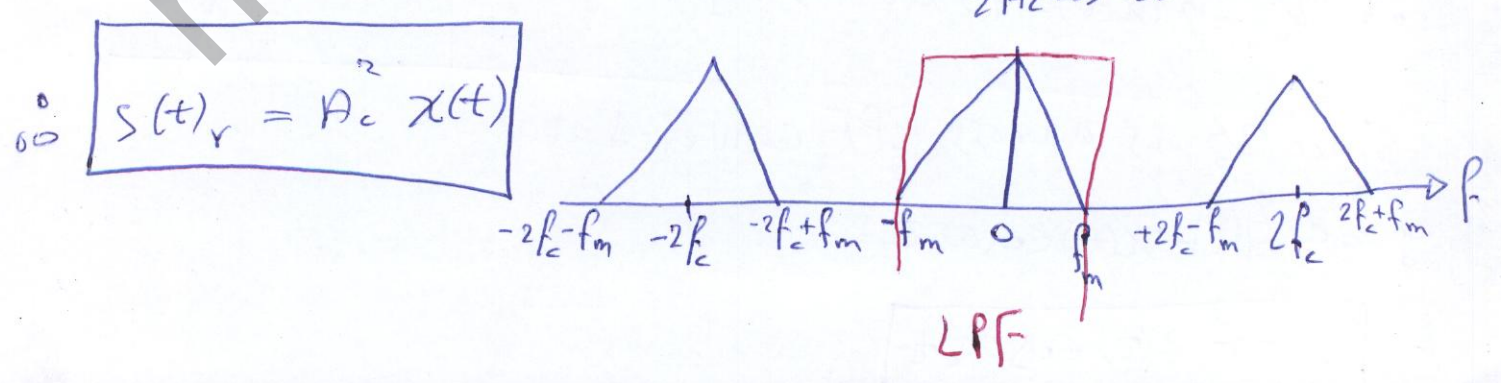 ∴ s(t)ᵣ = A_c² x(t)
-2f_c-f_m -2f_c -2f_c+f_m -f_m 0 f_m +2f_c-f_m 2f_c 2f_c+f_m f
LPF